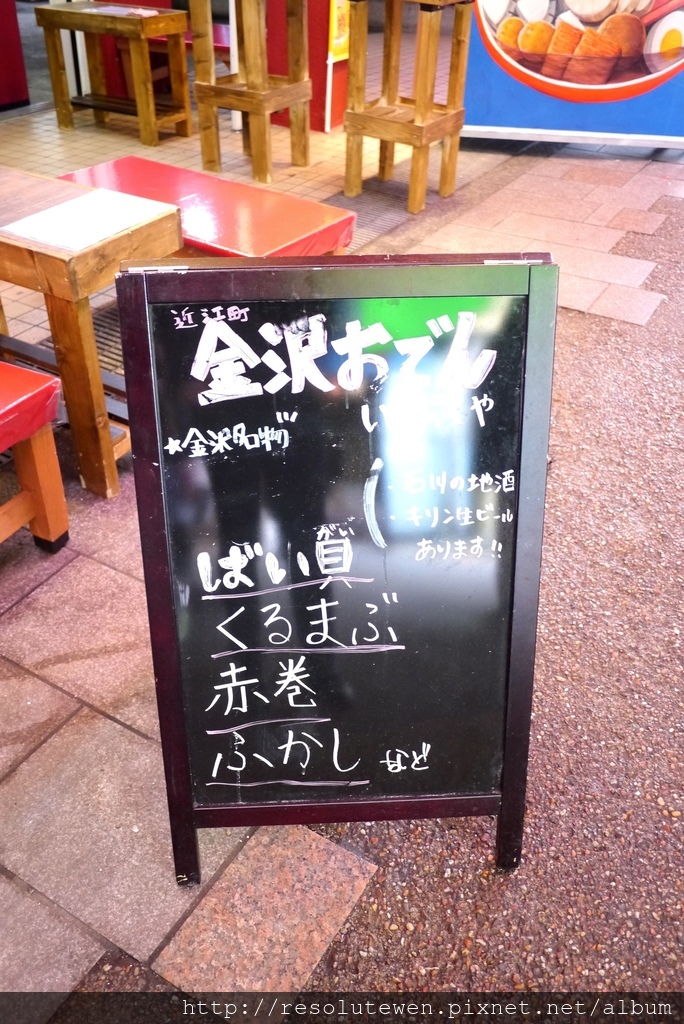 近江町
金沢おでん
★金沢名物
・石川の地酒
・キリン生ビール
あります!!
がい
ばい貝
くるまぶ
赤巻
ふかし など
http://resolutewen.pixnet.net/album